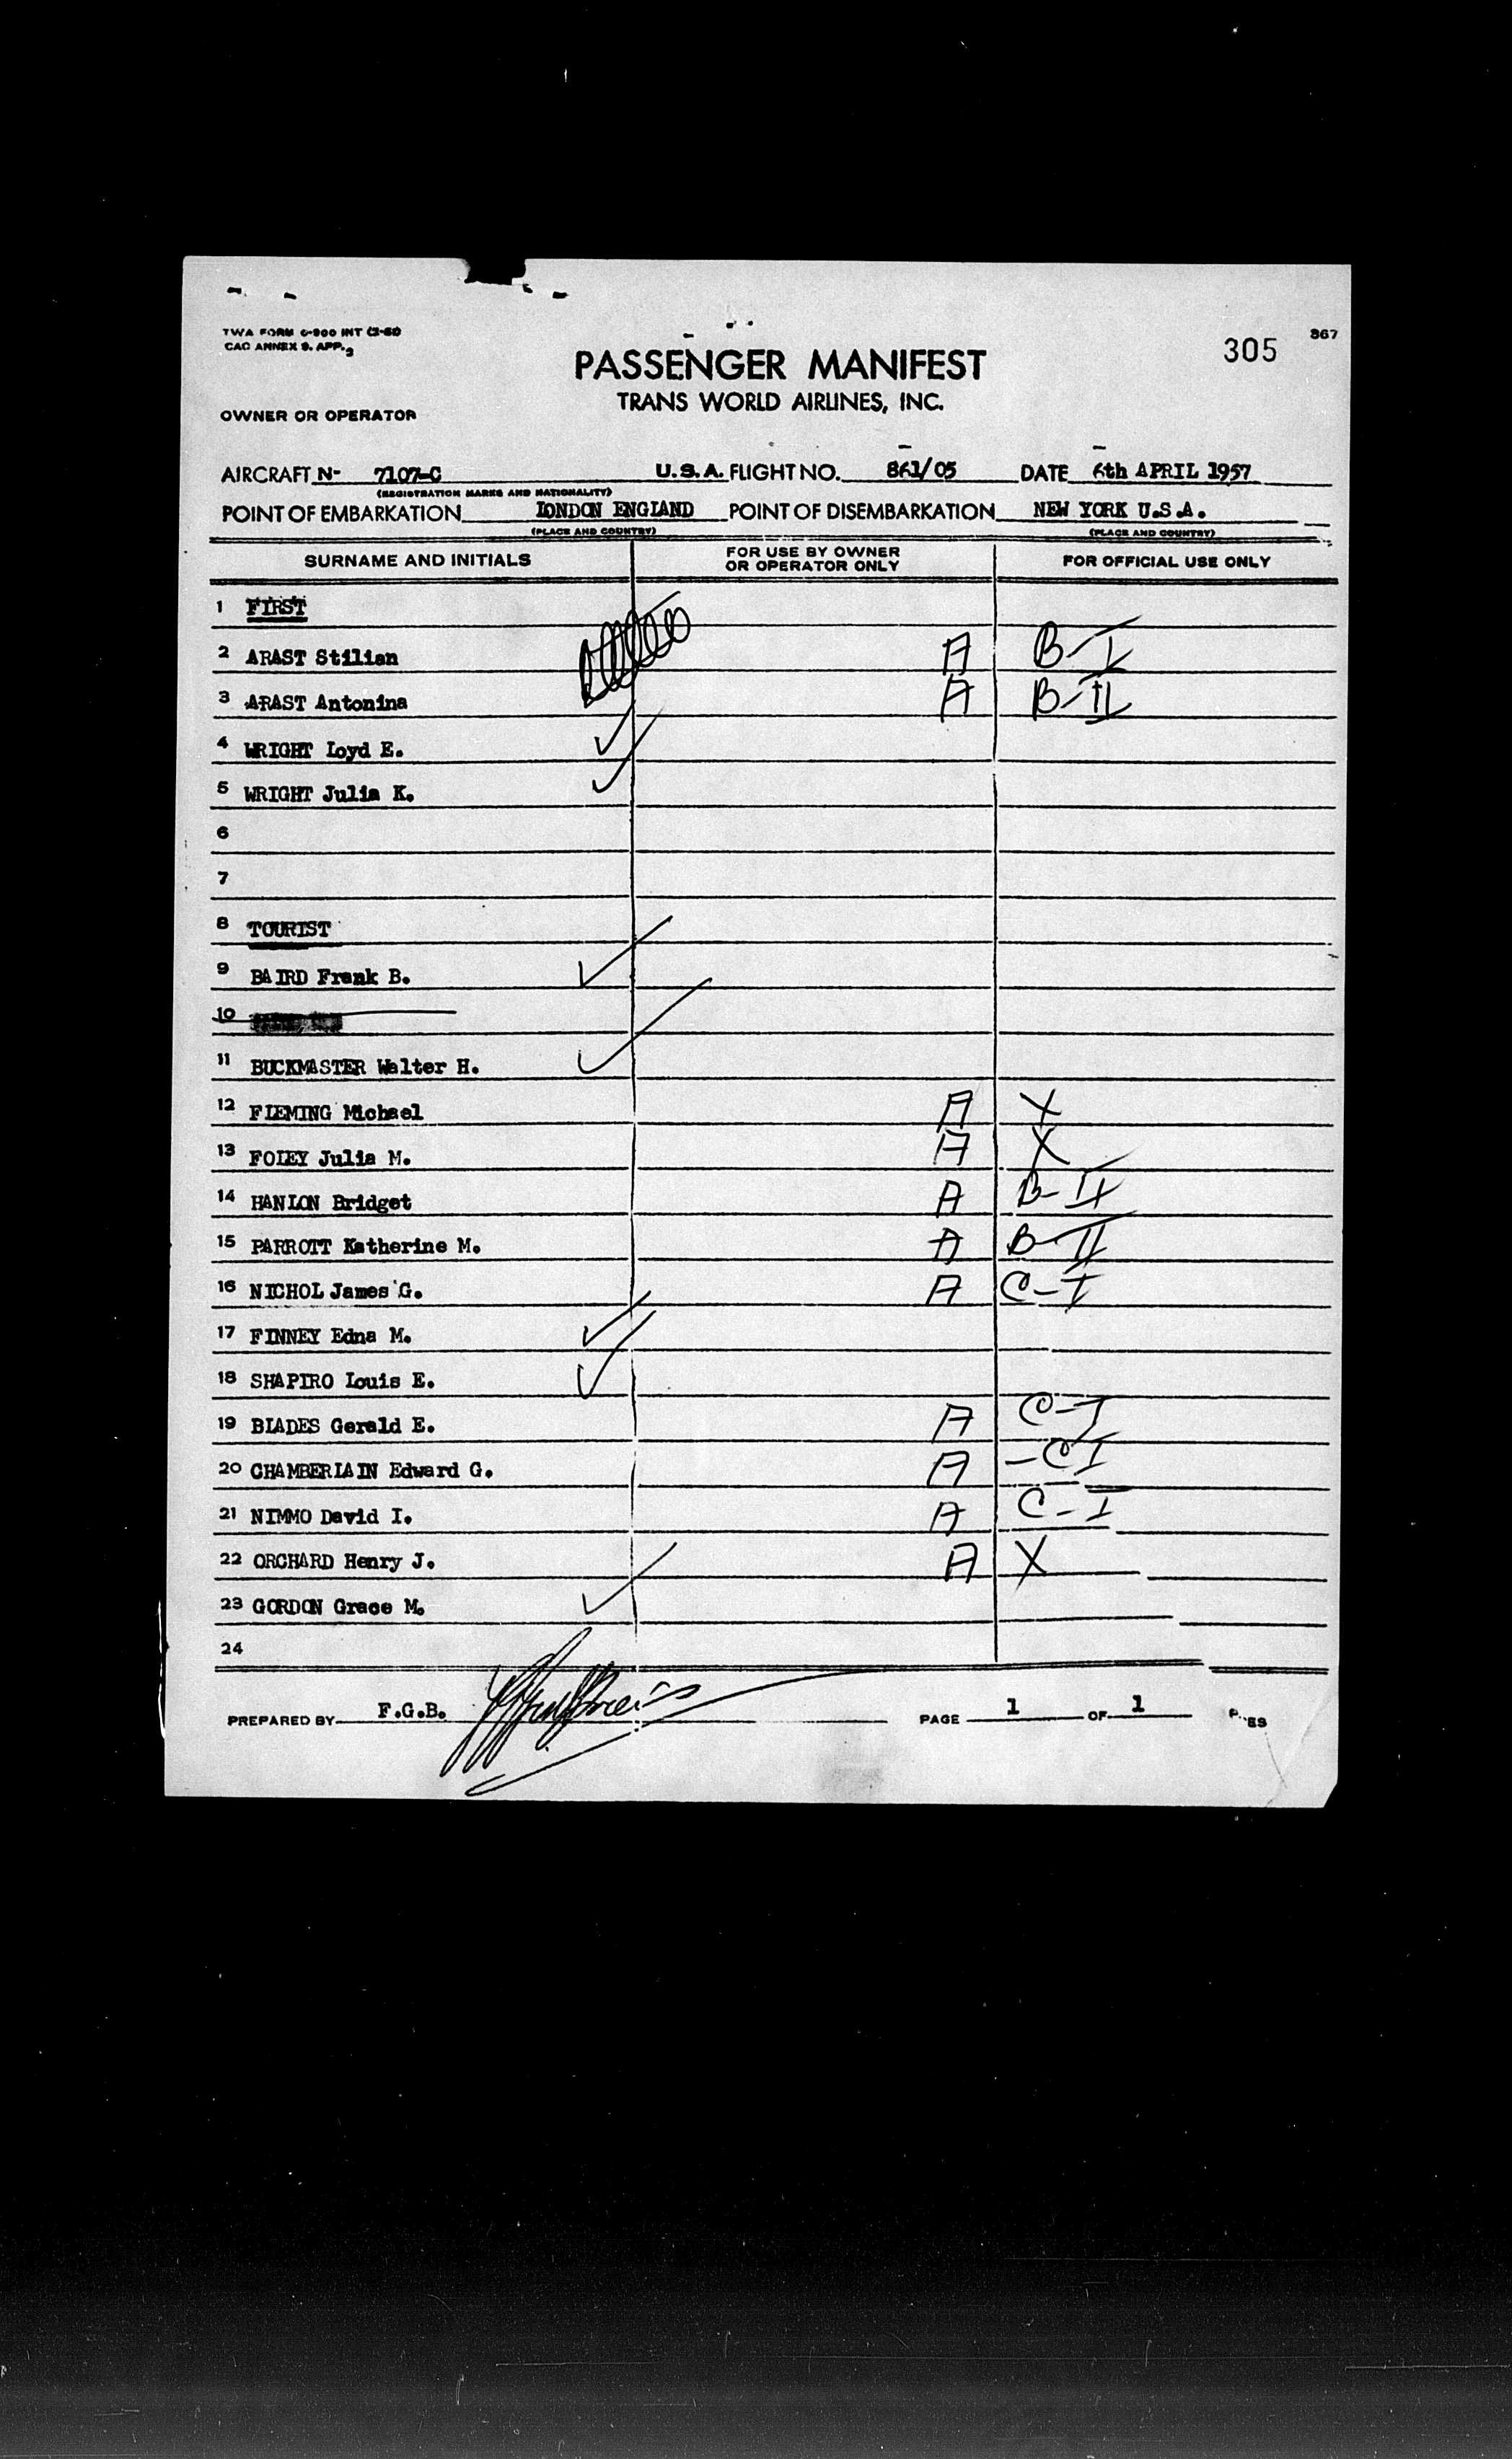 TWA FORM
CAO ANNEX 9. APP. 2
867
305
PASSENGER MANIFEST
TRANS WORLD AIRLINES, INC.
OWNER OR OPERATOR
AIRCRAFT N- 7107-C U.S.A. FLIGHT NO. 861/05 DATE 6th APRIL 1957
(REGISTRATION MARKS AND NATIONALITY)
POINT OF EMBARKATION LONDON ENGLAND POINT OF DISEMBARKATION NEW YORK U.S.A.
(PLACE AND COUNTRY) (PLACE AND COUNTRY)
SURNAME AND INITIALS FOR USE BY OWNER OR OPERATOR ONLY FOR OFFICIAL USE ONLY
1 FIRST
2 ARAST Stilian A B-I
3 ARAST Antonina A B-II
4 WRIGHT Loyd E.
5 WRIGHT Julia K.
6
7
8 TOURIST
9 BAIRD Frank B.
10
11 BUCKMASTER Walter H.
12 FLEMING Michael A X
13 FOLEY Julia M. A X
14 HANLON Bridget A B-II
15 PARROTT Katherine M. A B-II
16 NICHOL James G. A C-I
17 FINNEY Edna M.
18 SHAPIRO Louis E.
19 BLADES Gerald E. A C-I
20 CHAMBERLAIN Edward G. A -CI
21 NIMMO David I. A C-I
22 ORCHARD Henry J. A X
23 GORDON Grace M.
24
PREPARED BY F.G.B. PAGE 1 OF 1